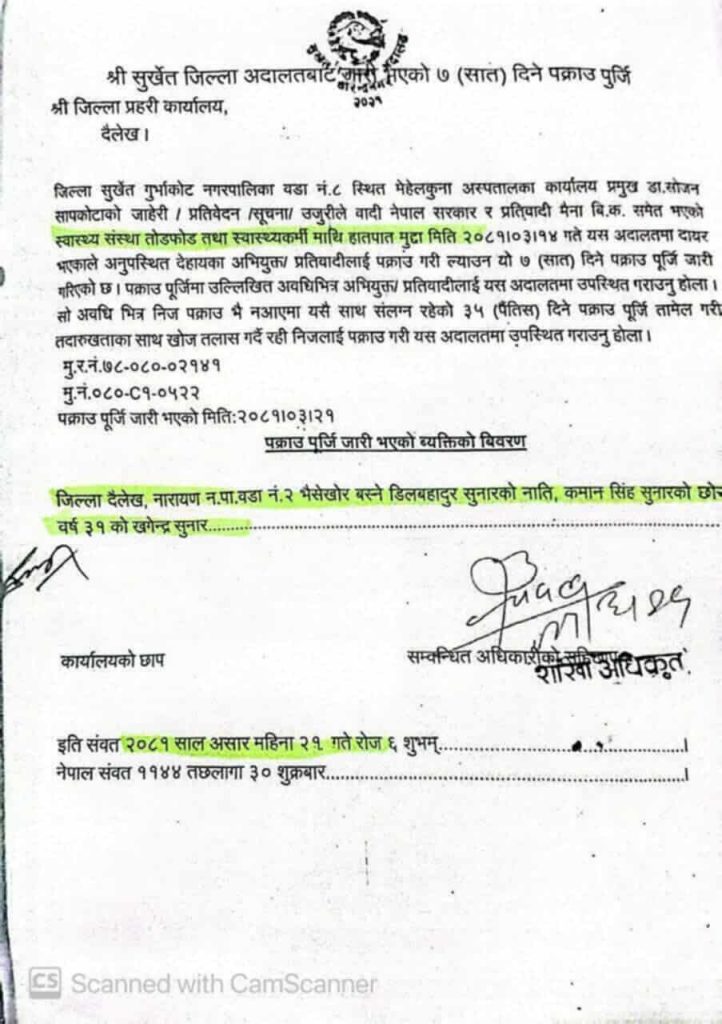 २०२१
श्री सुर्खेत जिल्ला अदालतबाट जारी भएको ७ (सात) दिने पक्राउ पुर्जि
श्री जिल्ला प्रहरी कार्यालय,
दैलेख ।
जिल्ला सुर्खेत गुर्भाकोट नगरपालिका वडा नं.८ स्थित मेहेलकुना अस्पतालका कार्यालय प्रमुख डा.सोजन
सापकोटाको जाहेरी / प्रतिवेदन /सूचना/ उजुरीले वादी नेपाल सरकार र प्रतिवादी मैना बि.क. समेत भएको
स्वास्थ्य संस्था तोडफोड तथा स्वास्थ्यकर्मी माथि हातपात मुद्दा मिति २०८१।०३।१४ गते यस अदालतमा दायर
भएकाले अनुपस्थित देहायका अभियुक्त/ प्रतिवादीलाई पक्राउ गरी ल्याउन यो ७ (सात) दिने पक्राउ पूर्जि जारी
गरिएको छ । पक्राउ पूर्जिमा उल्लिखित अवधिभित्र अभियुक्त/ प्रतिवादीलाई यस अदालतमा उपस्थित गराउनु होला ।
सो अवधि भित्र निज पक्राउ भै नआएमा यसै साथ संलग्न रहेको ३५ (पैंतिस) दिने पक्राउ पूर्जि तामेल गरी
तदारुखताका साथ खोज तलास गर्दै रही निजलाई पक्राउ गरी यस अदालतमा उपस्थित गराउनु होला ।
मु.र.नं.७८-०८०-०२१४१
मु.नं.०८०-C१-०५२२
पक्राउ पूर्जि जारी भएको मिति:२०८१।०३।२१
पक्राउ पूर्जि जारी भएको ब्यक्तिको बिवरण
जिल्ला दैलेख, नारायण न.पा.वडा नं.२ भैसेखोर बस्ने डिलबहादुर सुनारको नाति, कमान सिंह सुनारको छोर
वर्ष ३१ को खगेन्द्र सुनार..........
कार्यालयको छाप
सम्वन्धित अधिकारीको
शाखा अधिकृत
इति संवत २०८१ साल असार महिना २१ गते रोज ६ शुभम्..........।
नेपाल संवत ११४४ तछलागा ३० शुक्रबार..........।
CS Scanned with CamScanner